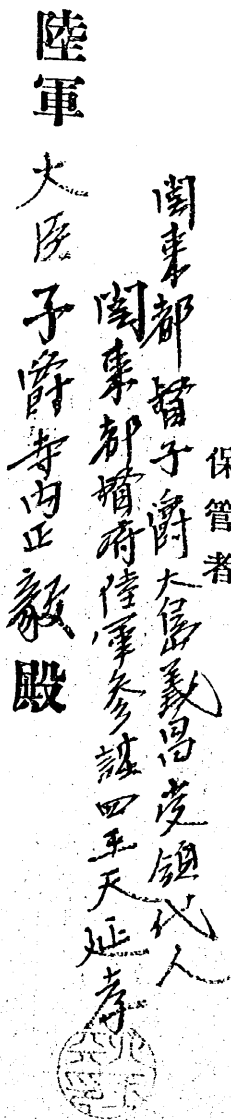 保管者
関東都督子爵大島義昌受領代人
関東都督府陸軍参謀四王天延孝
陸軍大臣子爵寺内正毅殿